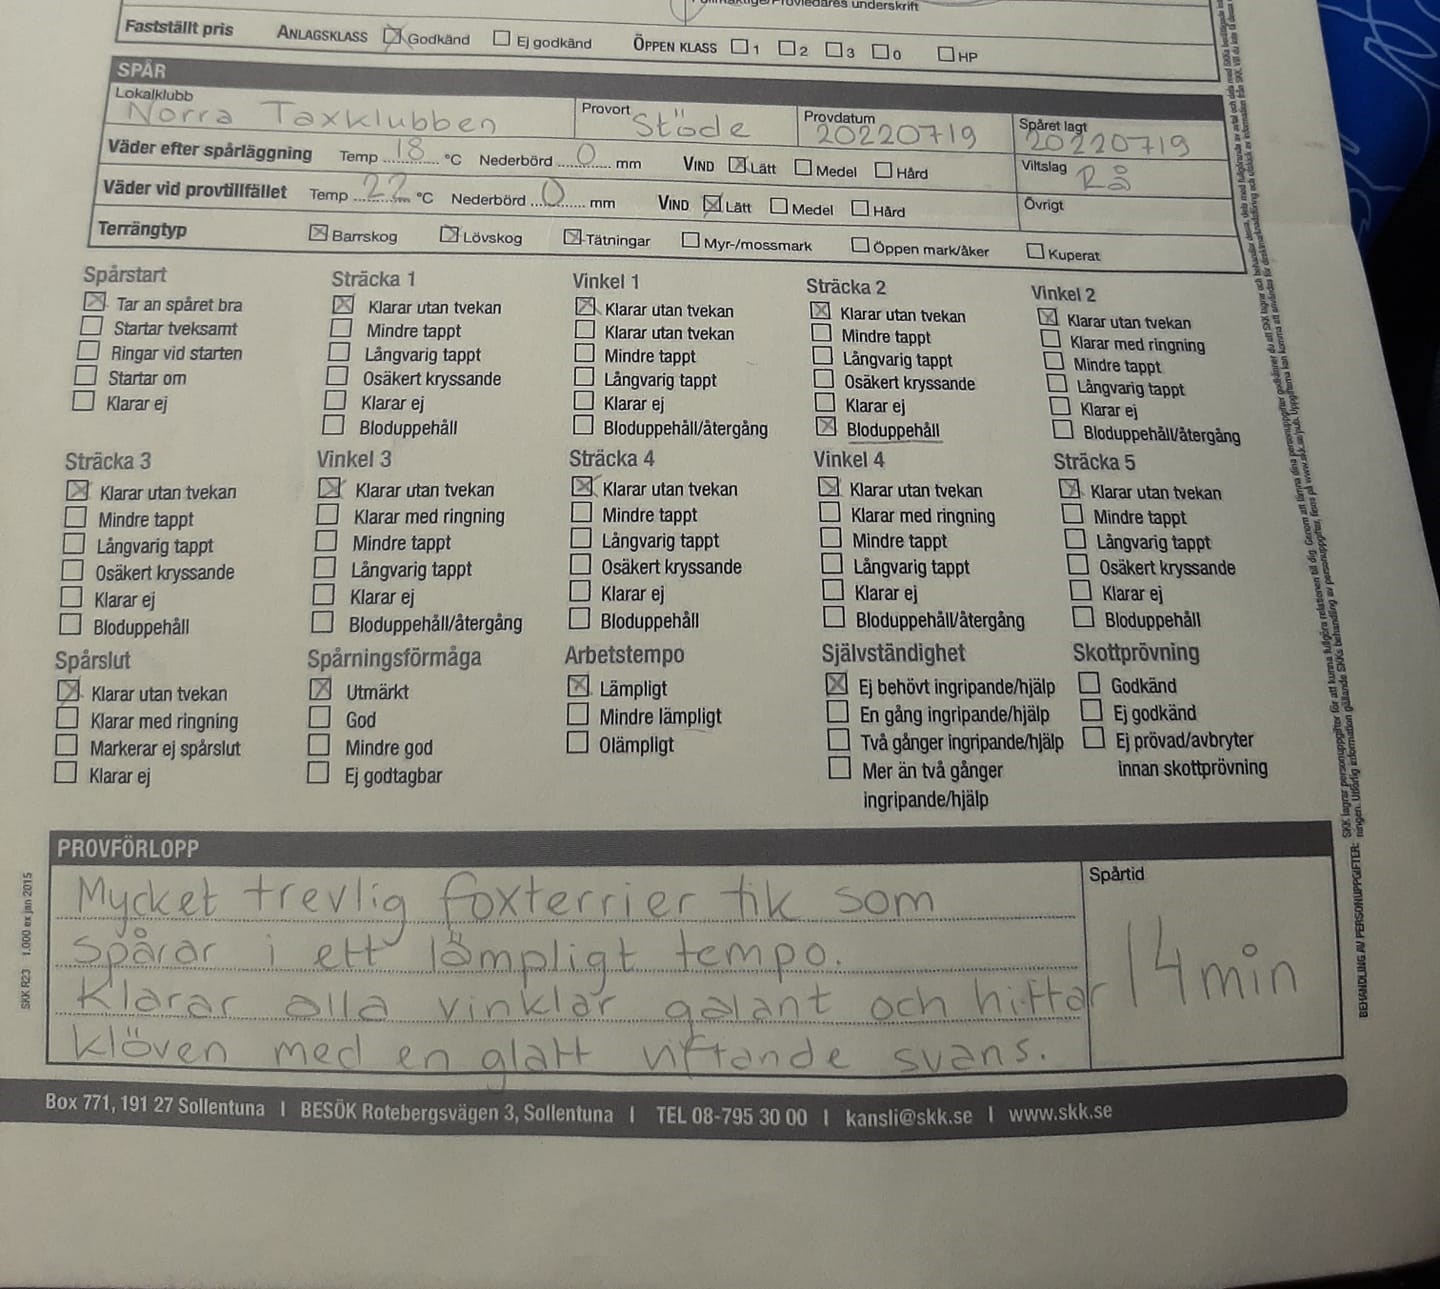 underskrift
Fastställt pris ANLAGSKLASS ☒ Godkänd ☐ Ej godkänd ÖPPEN KLASS ☐ 1 ☐ 2 ☐ 3 ☐ 0 ☐ HP
SPÅR
Lokalklubb Provort Provdatum Spåret lagt
Norra Taxklubben Stöde 20220719 20220719
Väder efter spårläggning Temp 18 °C Nederbörd 0 mm VIND ☒ Lätt ☐ Medel ☐ Hård Viltslag Rå
Väder vid provtillfället Temp 22 °C Nederbörd 0 mm VIND ☒ Lätt ☐ Medel ☐ Hård Övrigt
Terrängtyp ☒ Barrskog ☒ Lövskog ☒ Tätningar ☐ Myr-/mossmark ☐ Öppen mark/åker ☐ Kuperat
Spårstart
☒ Tar an spåret bra
☐ Startar tveksamt
☐ Ringar vid starten
☐ Startar om
☐ Klarar ej
Sträcka 1
☒ Klarar utan tvekan
☐ Mindre tappt
☐ Långvarig tappt
☐ Osäkert kryssande
☐ Klarar ej
☐ Bloduppehåll
Vinkel 1
☒ Klarar utan tvekan
☐ Klarar utan tvekan
☐ Mindre tappt
☐ Långvarig tappt
☐ Klarar ej
☐ Bloduppehåll/återgång
Sträcka 2
☒ Klarar utan tvekan
☐ Mindre tappt
☐ Långvarig tappt
☐ Osäkert kryssande
☐ Klarar ej
☒ Bloduppehåll
Vinkel 2
☒ Klarar utan tvekan
☐ Klarar med ringning
☐ Mindre tappt
☐ Långvarig tappt
☐ Klarar ej
☐ Bloduppehåll/återgång
Sträcka 3
☒ Klarar utan tvekan
☐ Mindre tappt
☐ Långvarig tappt
☐ Osäkert kryssande
☐ Klarar ej
☐ Bloduppehåll
Vinkel 3
☒ Klarar utan tvekan
☐ Klarar med ringning
☐ Mindre tappt
☐ Långvarig tappt
☐ Klarar ej
☐ Bloduppehåll/återgång
Sträcka 4
☒ Klarar utan tvekan
☐ Mindre tappt
☐ Långvarig tappt
☐ Osäkert kryssande
☐ Klarar ej
☐ Bloduppehåll
Vinkel 4
☒ Klarar utan tvekan
☐ Klarar med ringning
☐ Mindre tappt
☐ Långvarig tappt
☐ Klarar ej
☐ Bloduppehåll/återgång
Sträcka 5
☒ Klarar utan tvekan
☐ Mindre tappt
☐ Långvarig tappt
☐ Osäkert kryssande
☐ Klarar ej
☐ Bloduppehåll
Spårslut
☒ Klarar utan tvekan
☐ Klarar med ringning
☐ Markerar ej spårslut
☐ Klarar ej
Spårningsförmåga
☒ Utmärkt
☐ God
☐ Mindre god
☐ Ej godtagbar
Arbetstempo
☒ Lämpligt
☐ Mindre lämpligt
☐ Olämpligt
Självständighet
☒ Ej behövt ingripande/hjälp
☐ En gång ingripande/hjälp
☐ Två gånger ingripande/hjälp
☐ Mer än två gånger
ingripande/hjälp
Skottprövning
☐ Godkänd
☐ Ej godkänd
☐ Ej prövad/avbryter
innan skottprövning
PROVFÖRLOPP
Mycket trevlig foxterrier tik som
spårar i ett lämpligt tempo.
Klarar alla vinklar galant och hittar
klöven med en glatt viftande svans.
Spårtid
14 min
Box 771, 191 27 Sollentuna | BESÖK Rotebergsvägen 3, Sollentuna | TEL 08-795 30 00 | kansli@skk.se | www.skk.se
SKK R23 1.000 ex jan 2015
BEHANDLING AV PERSONUPPGIFTER: